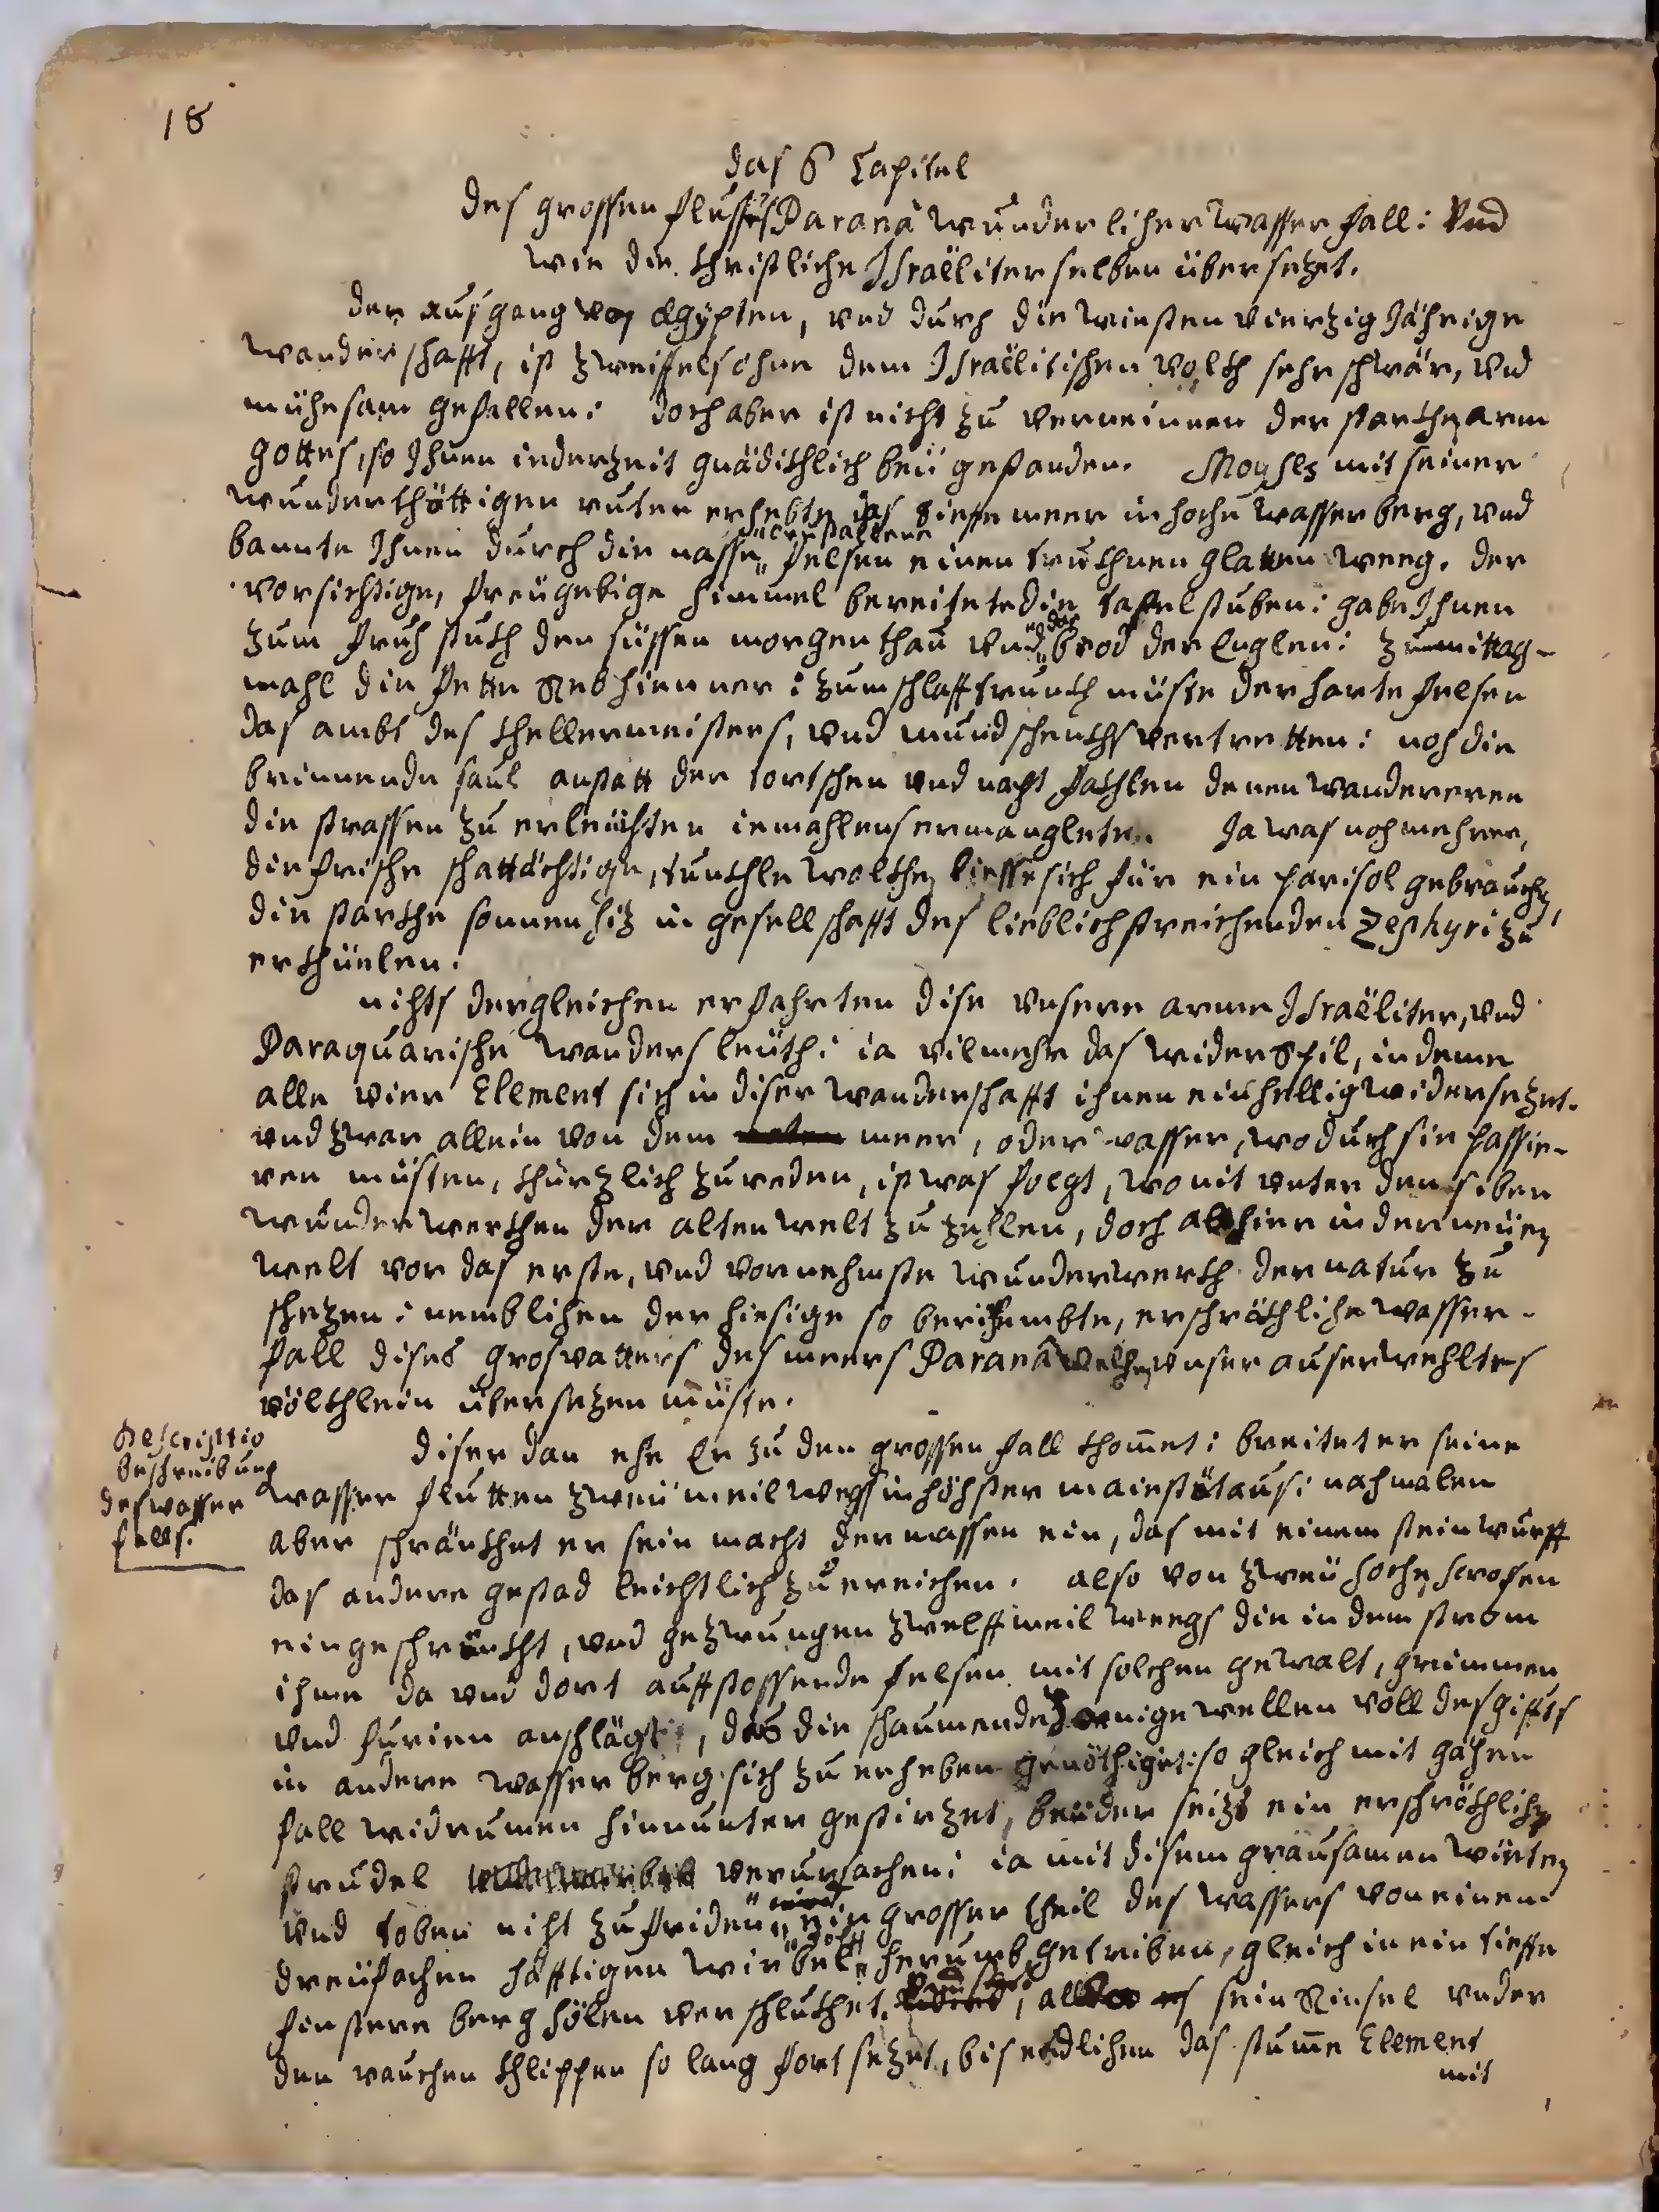 18
das 6 Capitel
des grossen flusses Paranà wunderlicher wasser fall: Vnd
wie die christliche Israëliter selben übersezet.
der ausgang von ægÿpten, vnd durch die wiesten vierzig Jährige
wanderschafft, ist zweiffels ohne dem Israëlitischen volckh sehr schwär, vnd
mühesam gefallen: doch aber ist nicht zu verneinnen der starckhe arm
gottes, so Ihnen inderzeit gnädichlich beÿ gestanden. Moÿses mit seiner
wunderthättigen ruten erhebte das tieffe meer in hoche wasserberg, vnd
crÿstallene
bannte Ihnen durch die nasse felsen einen truckhnen glatten weeg. der
vorsichtige, freÿgebige himmel bereitete die taffelstuben: gabe Ihnen
das
zum fruhstuckh den süssen morgenthau vnd brod der Englen: zu mittag-
mahl die fette Rebhienner: zum schlafftrunckh müste der harte felsen
das ambt des kellermeisters, vnd mundschenckhs vertretten: noch die
brinnende saul anstatt der tortschen vnd nacht fackhlen denen wandereren
die strassen zu erleüchten iemahlens ermanglete. Ja was noch mehrer,
die frische schattächtige, tunckhle wolckhen liesse sich für ein parisol gebrauchen,
die starckhe sonnen hiz in gesellschafft des lieblich streichenden Zephyri zu
erkhüelen.
nichts dergleichen erfahrten dise vnsere arme Israëliter, vnd
Paraquarische wandersleüth: ia vilmehr das widerspil, in deme
alle vier Element sich in diser wanderschafft ihnen einhellig widersezet.
vnd zwar allein von dem meer, oder wasser, wo durch sie passie-
ren müsten, khürzlich zu reden, ist was folgt, wo nit vnter den siben
wunderwerckhen der alten welt zu zehlen, doch alhier in der neüen
welt vor das erste, vnd vornehmste wunderwerckh der natur zu
schezen: nemblichen der hiesige so beriehmbte, erschröckhliche wasser-
fall dises grosvatters des meers Paranà welchen vnser auserwehltes
völckhlein übersezen müste.
Descriptio
beschreibung
des wasser
falls.
diser dan ehe Er zu den grossen fall khom̅et: breitet er seine
wasser flutten zweÿ meil wegs in höchster maiestät aus: nachmalen
aber schränckhet er sein macht dermassen ein, das mit einem steinwurff
das andere gestad leichtlich zu ereichen. also von zweÿ hochen schrofen
eingeschrenckht, vnd gezwungen zwelff meil weegs die in dem strom
ihme da vnd dort auffstossende felsen mit solchen gewalt, grimmen
vnd furien anschlägt, das die schaumende wellen voll des giffts
in andere wasserberg sich zu erheben genöthiget: so gleich mit gähen
fall widrumen hinnunter gestirzet, beÿder seits ein erschröckhlichen
strudel verursachen: ia mit disem grausamen wüeten
vnd toben nicht zu friden, ein grosser theil des wassers von einem
dreÿfachen häfftigen wirbel herumb getriben, gleich in ein tieffe
finstere berghölen verschluckhet, sein Rinsel vnder
den rauchen khlippen so lang fortsezet, bis endlichen das stum̅e Element
mit